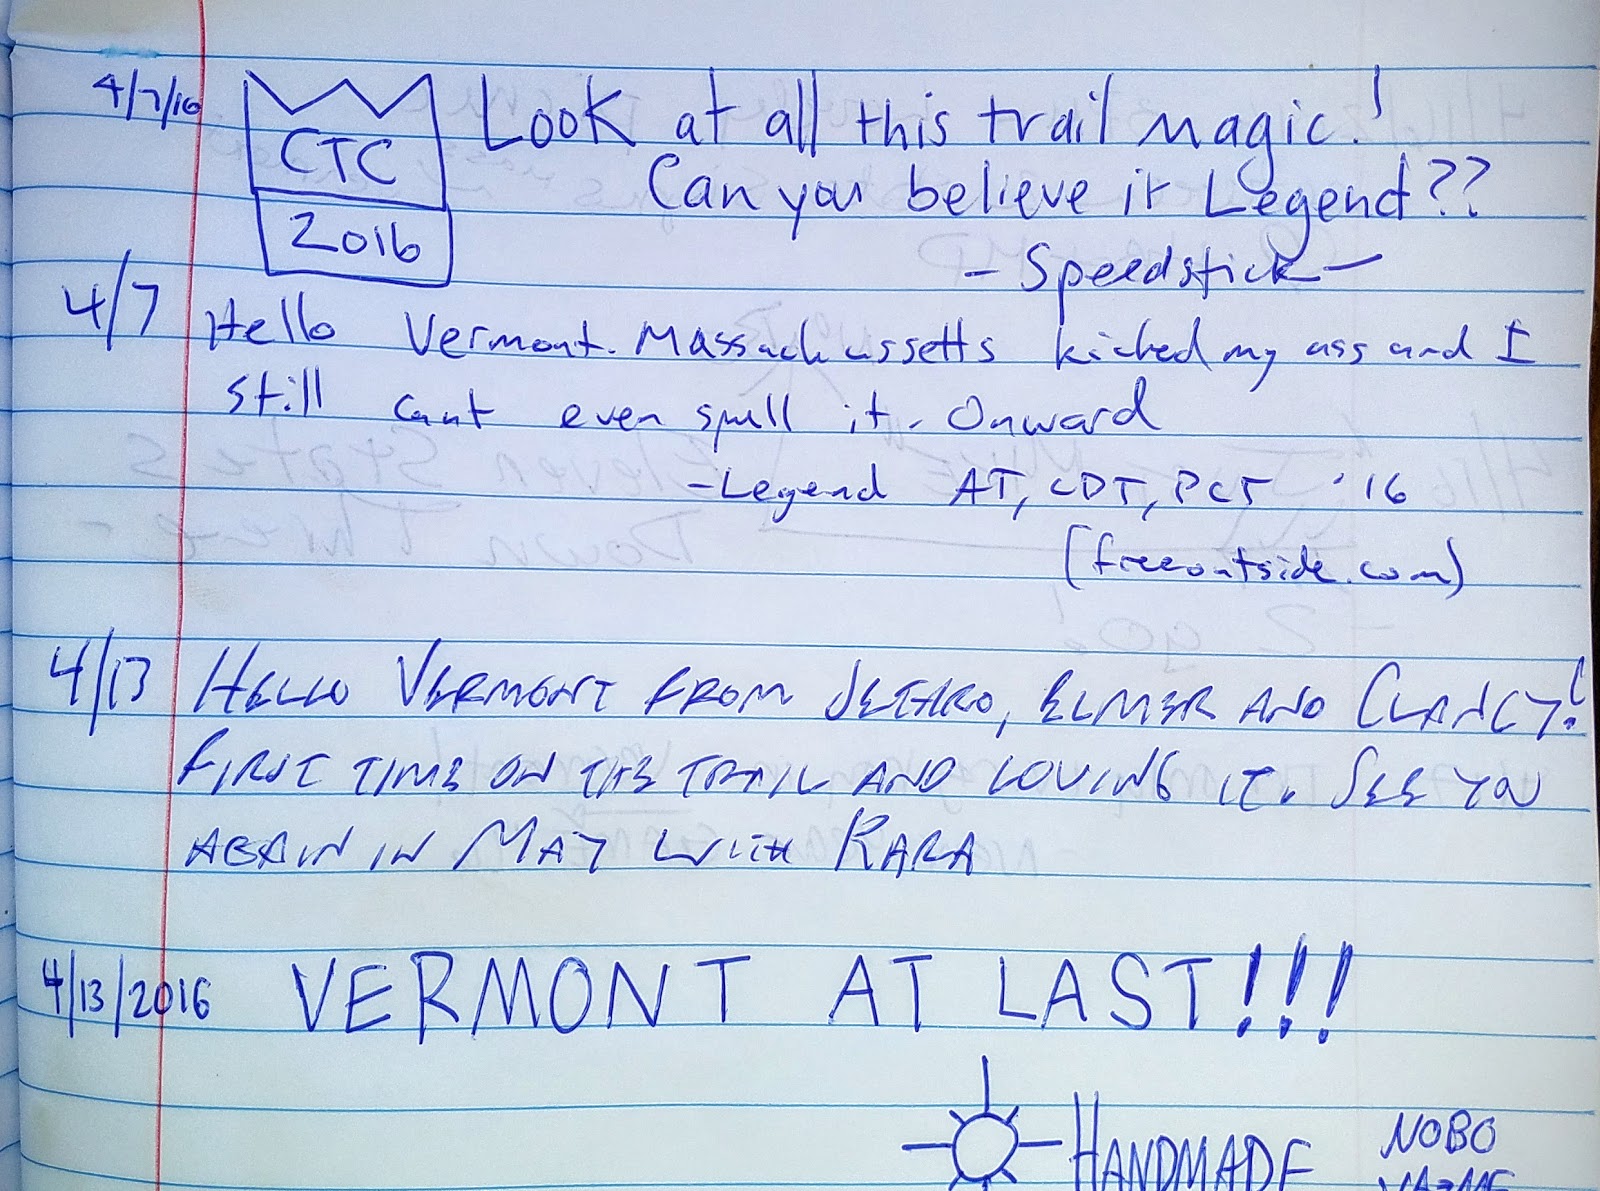 4/7/16 CTC 2016 Look at all this trail magic!
Can you believe it Legend??
- Speedstick -
4/7 Hello Vermont. Massachussetts kicked my ass and I
still cant even spell it. Onward
- Legend AT, CDT, PCT '16
(freeoutside.com)
4/13 HELLO VERMONT FROM JETHRO, ELMER AND CLANCY!
FIRST TIME ON THE TRAIL AND LOVING IT. SEE YOU
AGAIN IN MAY WITH KARA
4/13/2016 VERMONT AT LAST!!!
HANDMADE NOBO